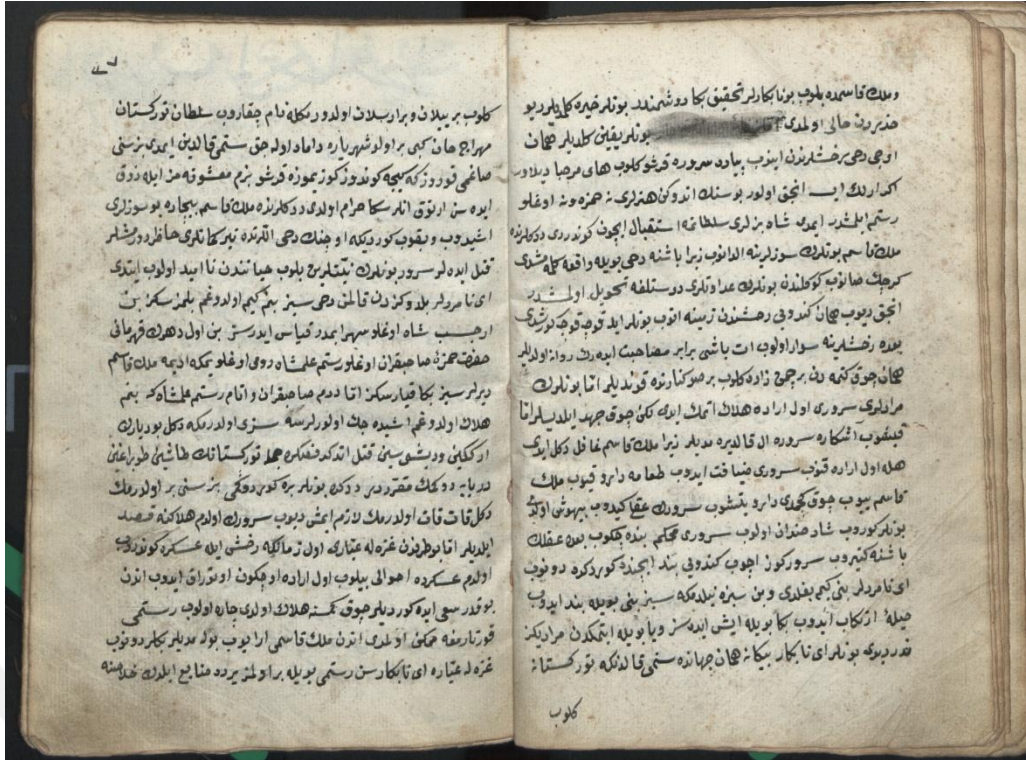 وملك قاسمده بلوب بونابكارلر تحقيق بكا دوشمندر بونلر خيره كلمديلر ديو
حذردن خالى اولمدى بونلر يقين كلديلر همان
اوچى دخى رخشلرندن اينوب پياده سروره قرشو كلوب هاى مرحبا ديلاور
اكدارلك ايسه انجق اولور بوسنك اندوكك هنرلرى نه حمزه ونه اوغلو
رستم ايلمشدر ايمدى شاه بزلرى سلطانمه استقبال ايچون كوندردى ددكلرنده
ملك قاسم بونلرك سوزلرينه الدانوب زيرا باشنه دخى بويله واقعه كلمه مشدى
كرچك صانوب كوكلندن بونلرك عداوتلرى دوستلغه تحويل اولمشدر
انجق ديوب همان كندوبى رخشندن زمينه اتوب بونلر ايله قوجه قوجه كورشدى
بعده رخشلرينه سوار اولوب ات باشى برابر مصاحبت ايدەرك روانه اولديلر
همان چوق كتمه دن بر چمن زاره كلوب بر صو كنارنده قونديلر اما بونلرك
مرادلرى سرورى اول اراده هلاك اتمك ايدى لكن چوق جهد ايلديلر اما
آشكاره سروره ال قالديره مديلر زيرا ملك قاسم غافل دكل ايدى
هله اول اراده قونوب سرورى ضيافت ايدوب طعامه دارو قيوب ملك
قاسم ييوب چوق كچمدى دارو يتشوب سرورك عقلى كيدوب بيهوش اولدى
بونلر كوروب شاد خندان اولوب سرورى محكم بنده چكوب بعده عقلك
باشنه كتوروب سرور كوز اچوب كندوبى بند ايچنده كوردكده دونوب
اى نامردلر بنى كيم بغلدى وبن سزه نيلدمكه سيز بنى بويله بند ايدوب
حيله ارتكاب ايدوب بكا بويله ايش ايده سز ويا بويله ايتمكدن مراديكز
ندر ديدى بونلر اى نابكار بيكانه همان جهانده سنمى قالدككه توركستانه
كلوب
كلوب بر ييلان وبر ارسلان اولدورمكله نام چقاروب سلطان توركستان
مهراج خان كبى بر اولو شهرياره داماد اوله حق سنمى قالدين ايمدى بزسنى
صاغمى قورزكه كيجه كوندوز كوزيموزه قرشو بزم معشوقه مز ايله ذوق
ايده سن ارتوق انلر سكا حرام اولدى ددكلرنده ملك قاسم بيچاره بو سوزلرى
اشيدوب وبقوب كورديكه اوچنك دخى اللرنده تير كمانلرى حاظر دورمشلر
قتل ايده لر سرور بونلرك نيتلرين بلوب حياتندن نا اميد اولوب ايتدى
اى نامردلر بلدوكزدن قالمن دخى سيز بنم كيم اولدوغم بلمزسكز بن
ارجسب شاه اوغلو سهرابمدر قياس ايدرسز بن اول دهرك قهرمانى
حضرت حمزهٔ صاحبقران اوغلو رستم علمشاه رومى اوغلو تمكه اديمه ملك قاسم
ديرلر سيز بكا قيارسكز اما ددم صاحبقران و اتام رستم علمشاه كه بنم
هلاك اولدوغم اشيده جك اولورلرسه سزى اولدرمك دكل بو ديارك
ارككنى وديشوسين قتل اتدكدنصكره جمله توركستانك طاشين طوپراغنى
دريايه دوكمك مقرردر ددكده بونلر بره كوردوكمى بز سنى بر اولدرمك
دكل قات قات اولدرمك لازم ايمش ديوب سرورك اولدم هلاكنه قصد
ايلديلر اما بو طرفدن غزه له عيارى اول زمانكه رخشى ايله عسكره كوندروب
اولدم عسكرده احوالى بيلوب اول اراده اوچكون اوتوراق ايدوب اندن
بوقدر سعى ايده كورديلر چوق كمسنه هلاك اولدى چاره اولوب رستمى
قورتارمغه ممكن اولمدى اندن ملك قاسمى ارايوب بوله مديلر بكلر دونوب
غزه له عياره اى نابكار سن رستمى بويله بر اولمز يرده ضايع ايلدك خلاصنه